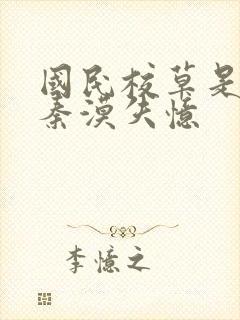 國民校草是
秦漠失憶
李憶之